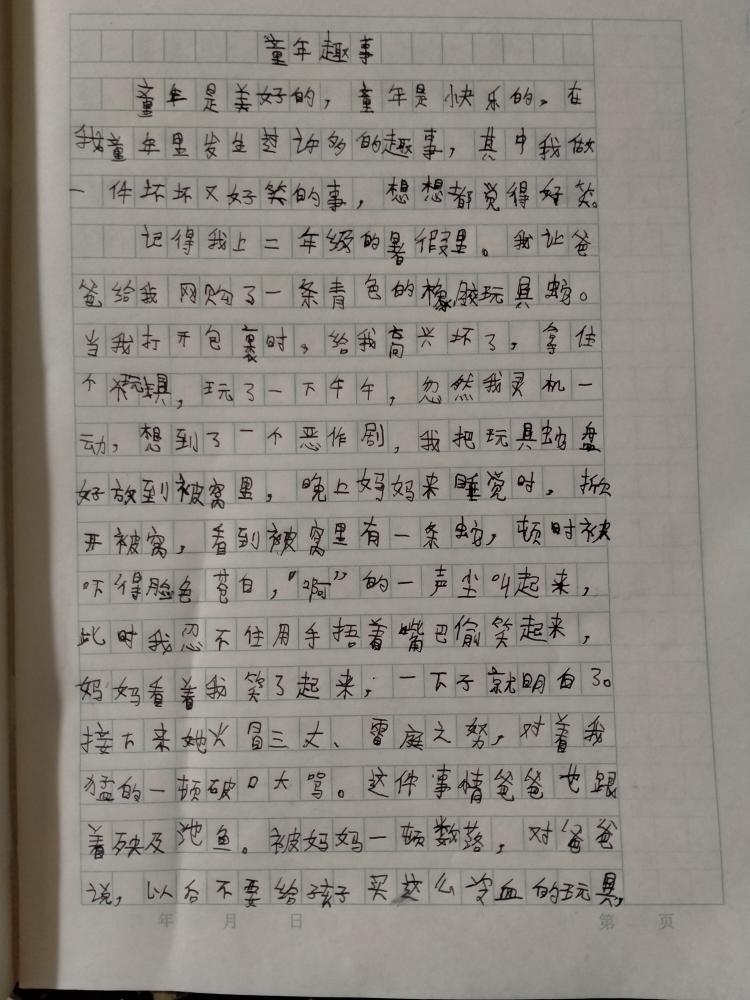 童年趣事
童年是美好的，童年是快乐的，在
我童年里发生过许多的趣事，其中我做
一件坏坏又好笑的事，想想都觉得好笑。
记得我上二年级的暑假里。我让爸
爸给我网购了一条青色的橡胶玩具蛇。
当我打开包裹时，给我高兴坏了，拿住
个玩具，玩了一下午午，忽然我灵机一
动，想到了一个恶作剧，我把玩具蛇盘
好放到被窝里，晚上妈妈来睡觉时，掀
开被窝，看到被窝里有一条蛇，顿时被
吓得脸色苍白，“啊”的一声尘叫起来，
此时我忍不住用手捂着嘴巴偷笑起来，
妈妈看着我笑了起来，一下子就明白了。
接下来她火冒三丈、雷庭之努，对着我
猛的一顿破口大骂。这件事情爸爸也跟
着殃及池鱼。被妈妈一顿数落，对爸爸
说，以后不要给孩子买这么冷血的玩具，
年 月 日 第 页